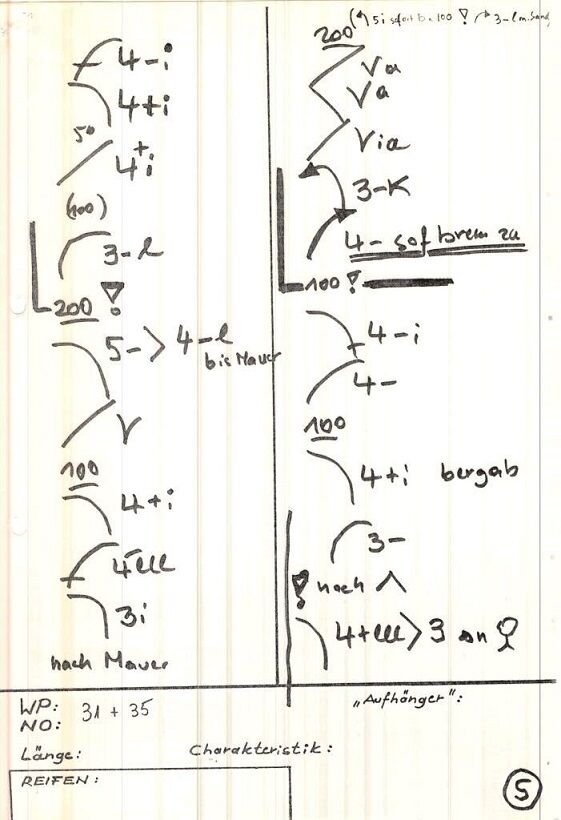 4-i
4+i
50
4+i
(100)
3-l
200 !
5- > 4-l
bis Mauer
V
100
4+i
4-lll
3i
nach Mauer
5i sofort b. 100 ! 3-l m. Sand
200
Va
Va
Via
3-K
4- sof brem zu
100 !
4-i
4-
100
4+i bergab
3-
! nach Λ
4+lll > 3 an
WP: 31 + 35
NO:
„Aufhänger":
Länge:
Charakteristik:
REIFEN:
5